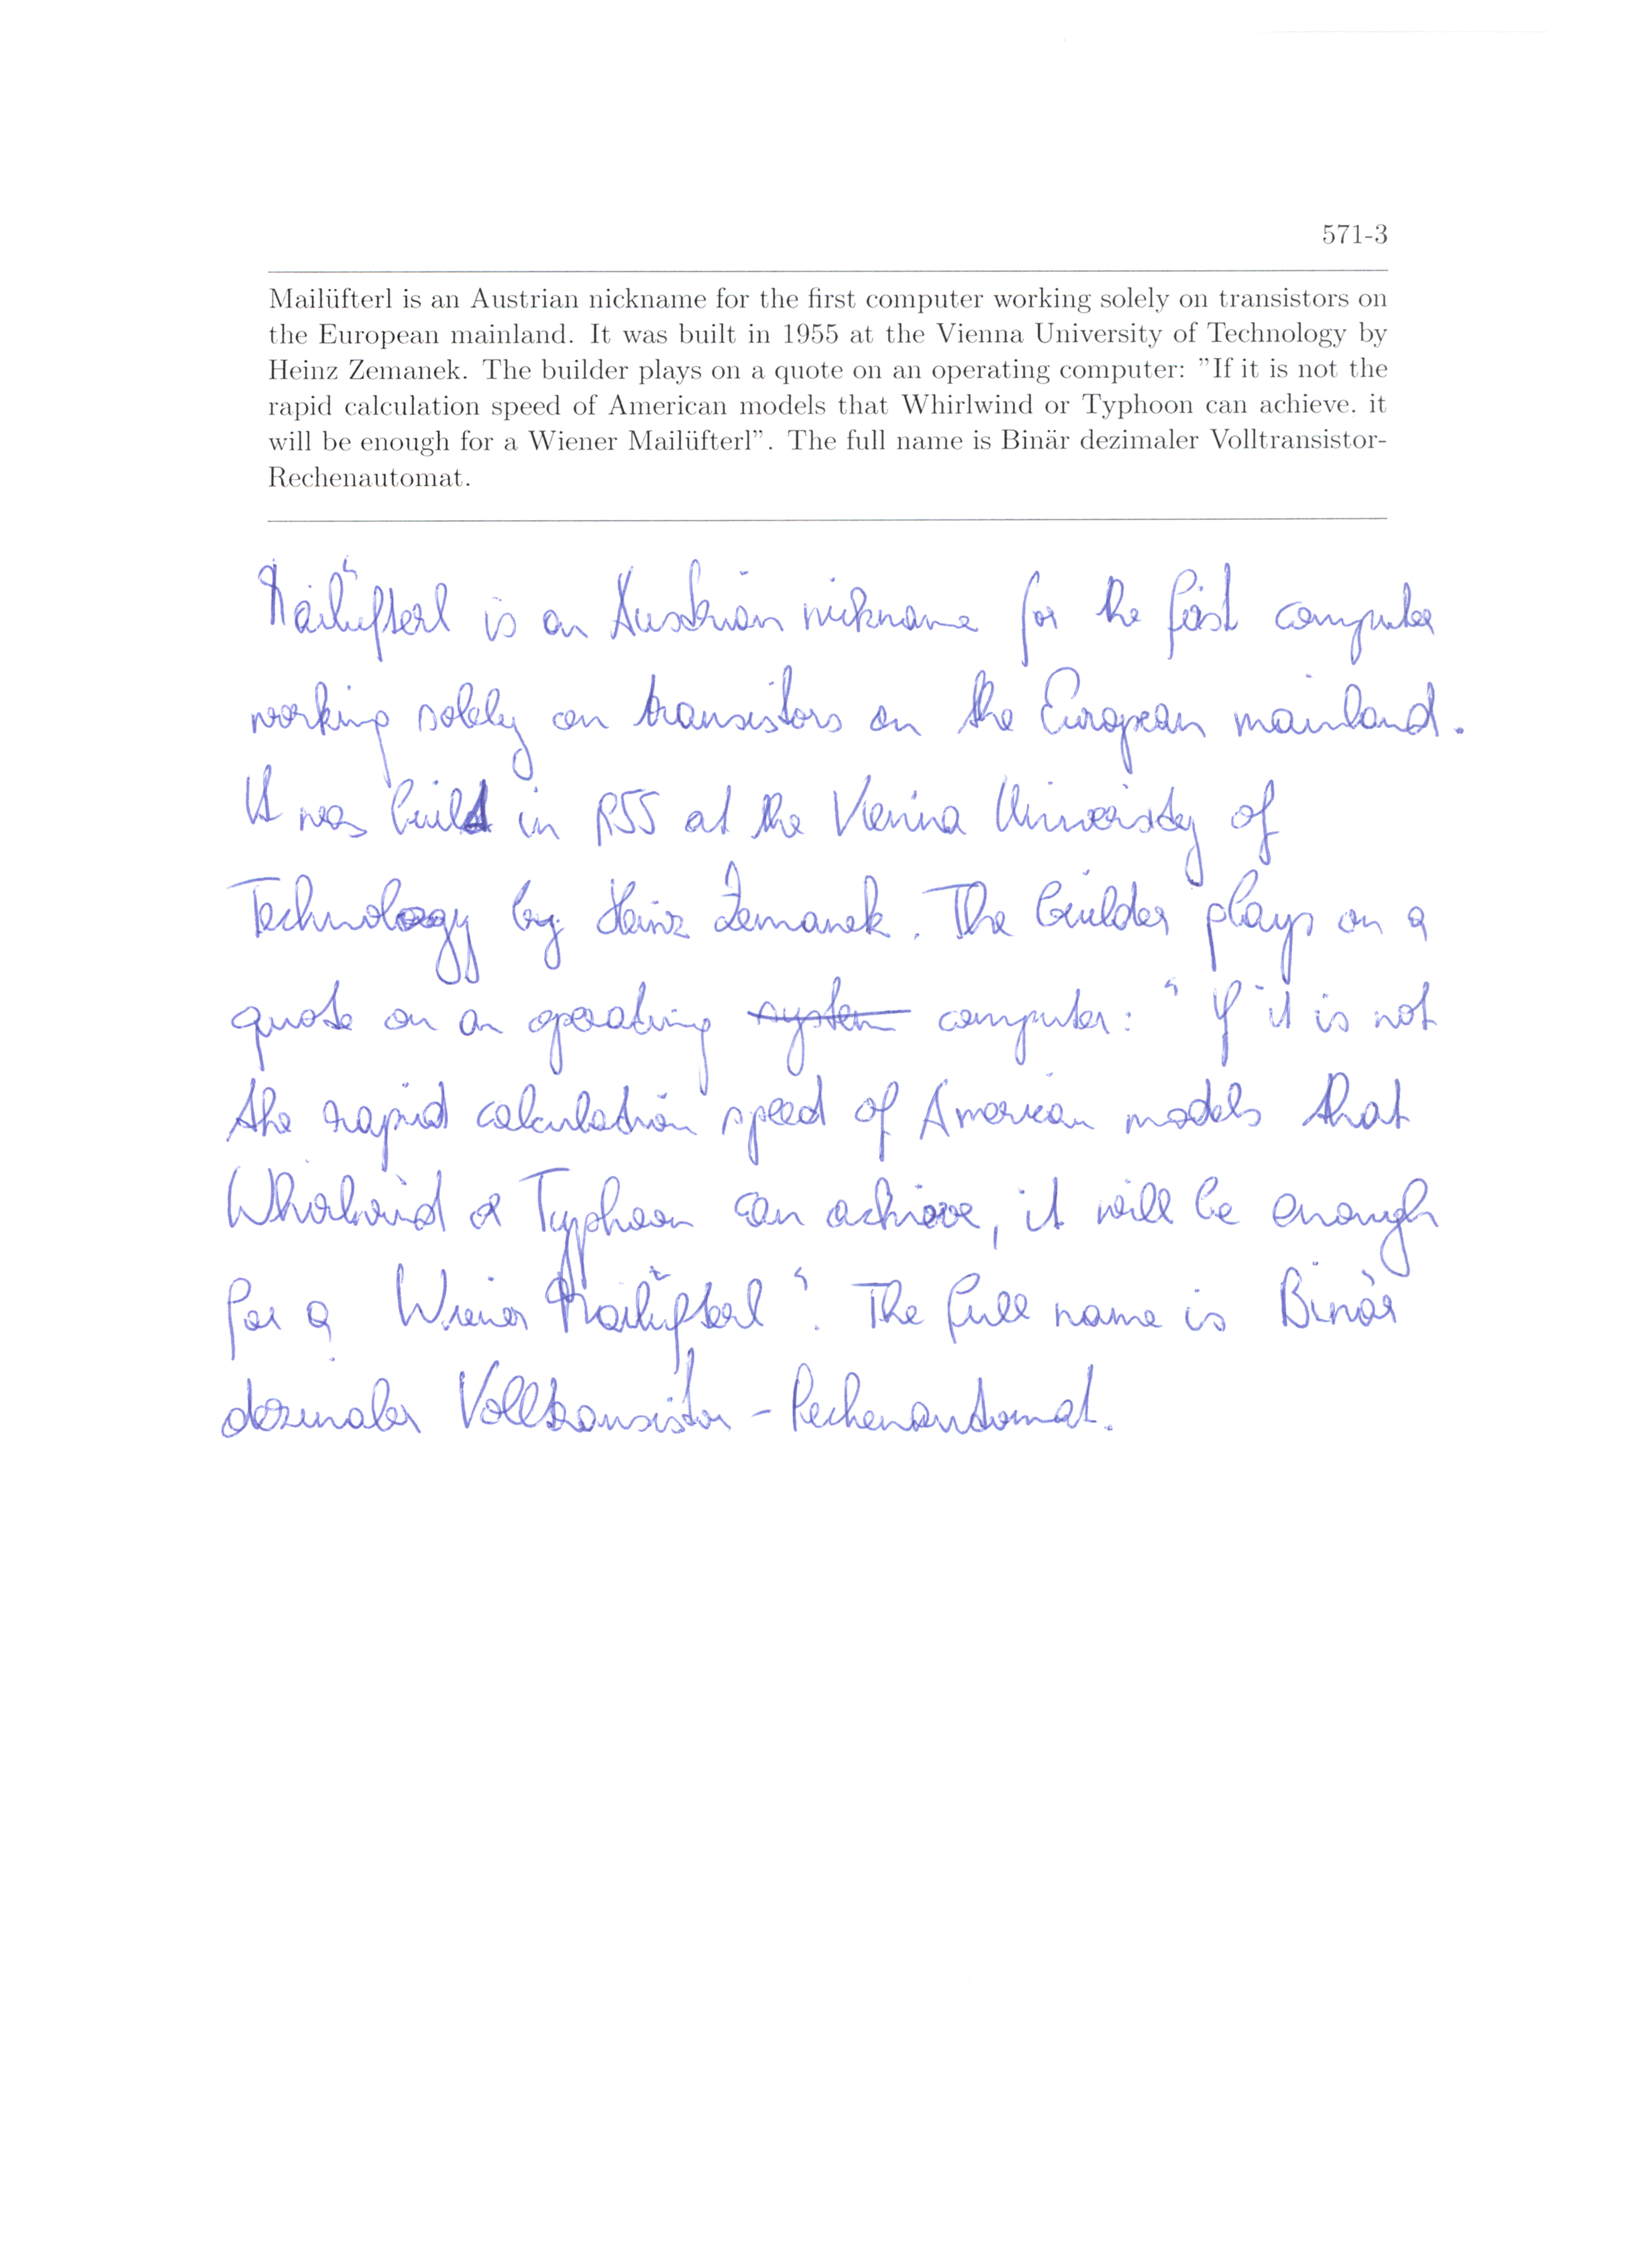 571-3
Mailüfterl is an Austrian nickname for the first computer working solely on transistors on
the European mainland. It was built in 1955 at the Vienna University of Technology by
Heinz Zemanek. The builder plays on a quote on an operating computer: "If it is not the
rapid calculation speed of American models that Whirlwind or Typhoon can achieve. it
will be enough for a Wiener Mailüfterl". The full name is Binär dezimaler Volltransistor-
Rechenautomat.
Mailüfterl is an Austrian nickname for the first computer
working solely on transistors on the European mainland.
It was built in 1955 at the Vienna University of
Technology by Heinz Zemanek. The builder plays on a
quote on an operating system computer: " If it is not
the rapid calculation speed of American models that
Whirlwind or Typhoon can achieve, it will be enough
for a Wiener Mailüfterl ". The full name is Binär
dezimaler Volltransistor - Rechenautomat.